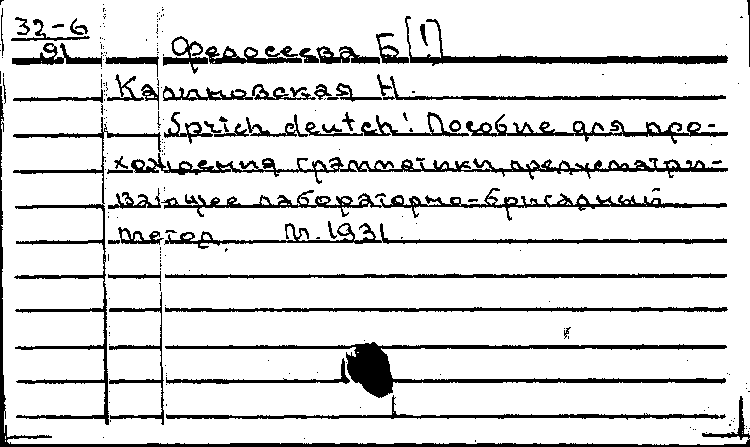 32-6
91
Федосеева Б[!]
Калиновская Н.
Sprich deutch! Пособие для про-
хождения грамматики, предусматри-
вающее лабораторно-бригадный
метод. М. 1931.